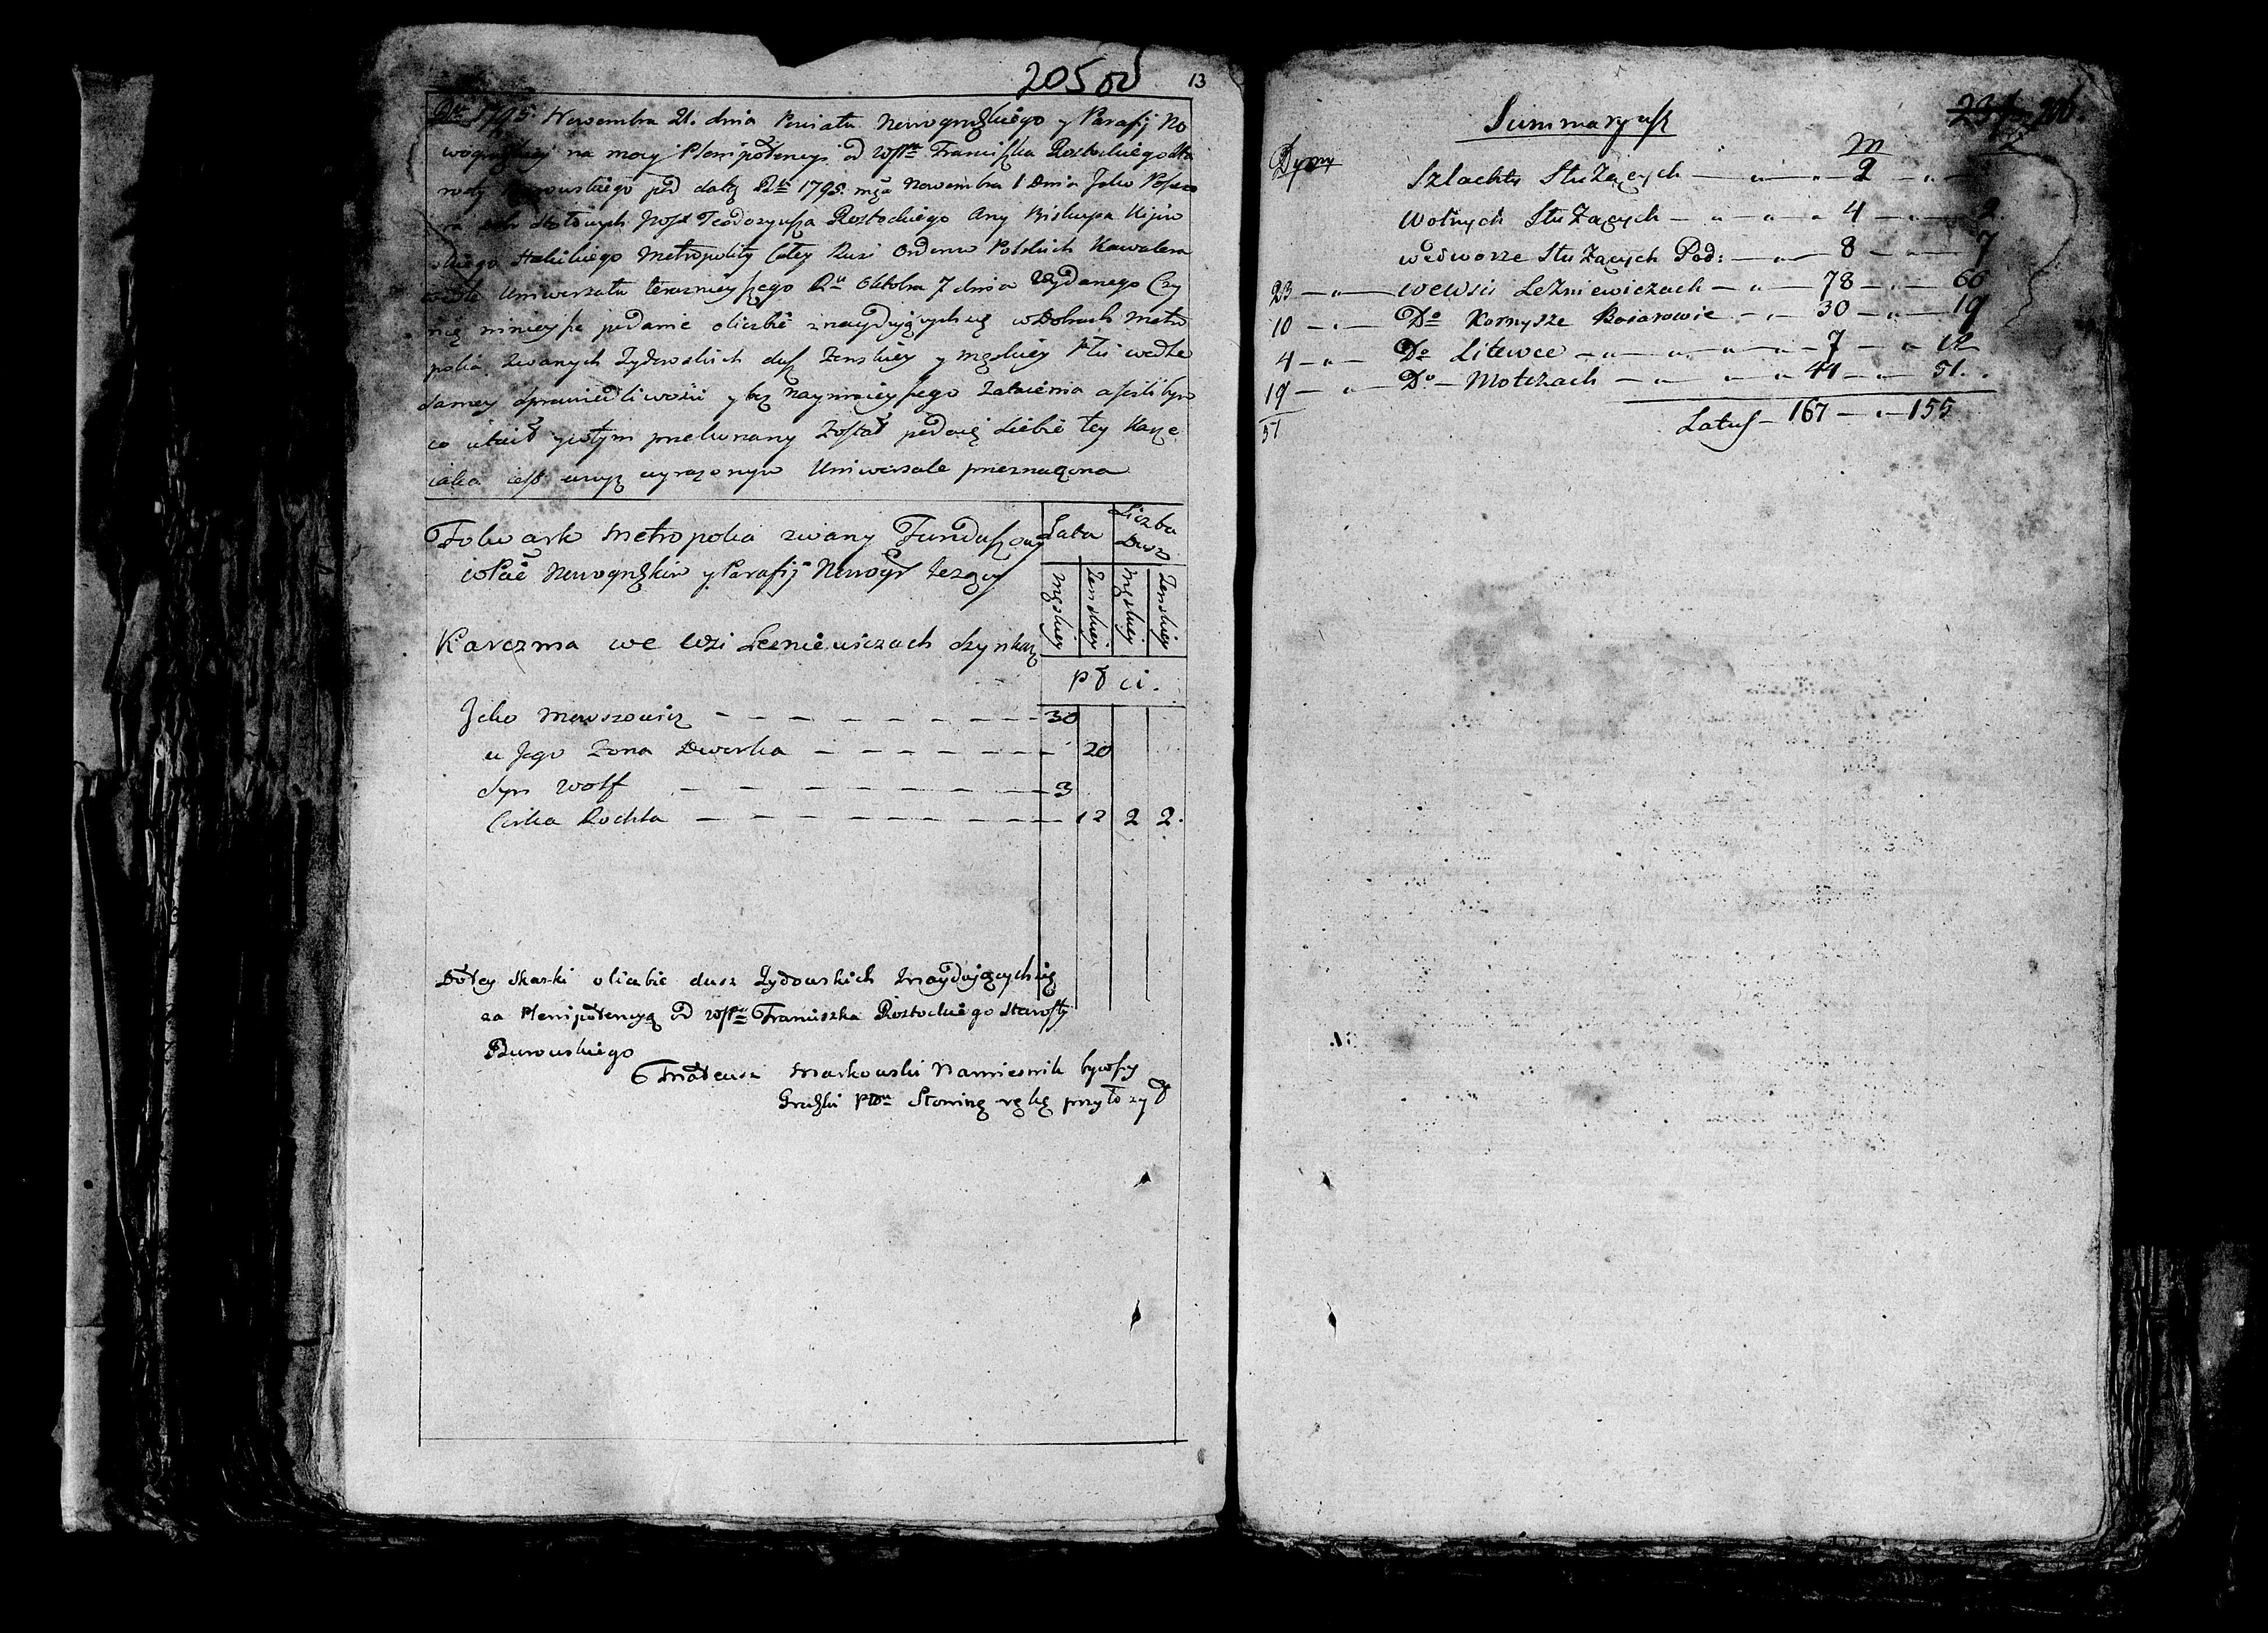 205 об
13
Rku 1795. Nowembra 21. dnia Powiatu Nowogrudzkiego y Parafij No
wogrudzkiey na mocy Plenipotencyi od WJPna Franciszka Rostockiego Sta
rosty pod datą Rku 1795. mca Nowembra 1 Dnia Jako Posses
ra dobr Stołowych Jmsc Teodozyusza Rostockiego Arcy Biskupa Kijow
skiego Halickiego Metropolity Całey Rusi Orderow Polskich Kawalera
wedle Uniwersału teraznieyszego Rku Oktobra 7 dnia Wydanego Czy
nię ninieysze podanie o liczbie znayduiących się w Dobrach Metro
polia zwanych Zydowskich dusz Zenskiey y męskiey Płci wedle
samey sprawiedliwości y bez naymnieyszego zataienia a jesli bym
co utaił y w tym przekonany Został poddaię Siebie tey Karze
iaka iest wwyż wyrażonym Uniwersale przeznaczona
Folwark Metropolia zwany Funduszowy
w Pcie Nowogrudzkim y Parafij Nowogr leżący
Lata
Liczba Dusz
Męskiey
Zenskiey
Męskiey
Zenskiey
Karczma we Wsi Lezniewiczach Szynkarz
płci.
Jcko Mowszowicz — 30
u Jego Zona Dwerka — 20
Syn Wolf — 3
Curka Rochla — 12 2 2.
Do tey Skarki o liczbie dusz Zydowskich Znayduiących się
za Plenipotencyą od WJPna Franciszka Rostockiego Starosty
Mateusz Markowski Namiesnik bywszy
Grudzki Ptwu Słonimę rękę przyłożył
Summaryusz
206.
Dymy
M
Szlachty Służących — 2 —
Wolnych Służących — 4 — 2
we dworze Służących Pod: — 8 — 7
23 — we wsi Leżniewiczach — 78 — 66
10 — Do Kornysze Boiarowie — 30 — 19
4 — Do Litewce — 7 — 12
19 — Do Motczach — 41 — 51.
57
Latus — 167 — 155